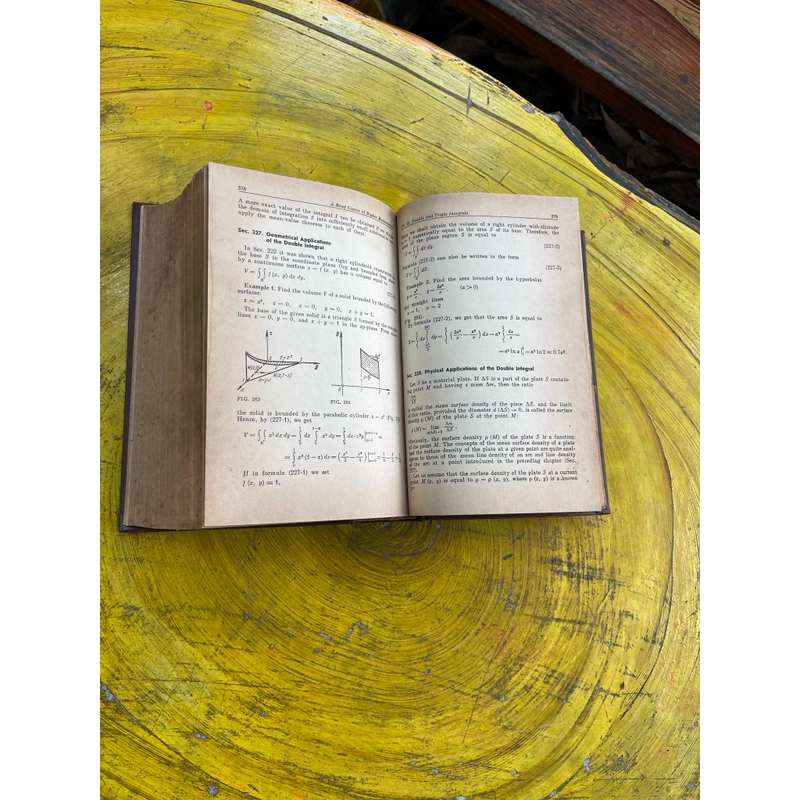 578
A Brief Course of Higher
A more exact value of the integral I can be obtained if we
the domain of integration S into sufficiently small subdomains
apply the mean-value theorem to each of them.
Sec. 227. Geometrical Applications
of the Double Integral
In Sec. 222 it was shown that a right cylindroid constructed
the base S in the coordinate plane Oxy and bounded from
by a continuous surface z = f (x, y) has a volume equal to
V = ∫∫ f (x, y) dx dy.
S
Example 1. Find the volume V of a solid bounded by the following
surfaces:
z = x², x = 0, y = 0, x + y = 1.
The base of the given solid is a triangle S formed by the straight
lines x = 0, y = 0, and x + y = 1 in the xy-plane. From above
z=x²
FIG. 263
FIG. 264
the solid is bounded by the parabolic cylinder z = x²
Hence, by (227-1), we get
V = ∫∫ x² dx dy = ∫ dx ∫ x² dy =
= ∫ x² (1 − x) dx =
in formula (227-1) we set
f (x, y) = 1,
Double and Triple Integrals
579
we shall obtain the volume of a right cylinder with altitude
1 numerically equal to the area S of its base. Therefore, the
of the plane region S is equal to
∫∫ dx dy.
(227-2)
Formula (227-2) can also be written in the form
∫∫ dS.
(227-3)
Example 2. Find the area bounded by the hyperbolas
(a > 0)
and straight lines
x = 1, x = 2
By formula (227-2), we get that the area S is equal to
= a² ln 2 ≈ 0.7a².
Sec. 228. Physical Applications of the Double Integral
Let S be a material plate. If ΔS is a part of the plate S contain-
ing point M and having a mass Δm, then the ratio
Δm
ΔS
is called the mean surface density of the piece ΔS, and the limit
of this ratio, provided the diameter d (ΔS) → 0, is called the surface
density ρ (M) of the plate S at the point M:
ρ (M) = lim Δm/ΔS.
Obviously, the surface density ρ (M) of the plate S is a function
of the point M. The concepts of the mean surface density of a plate
and the surface density of the plate at a given point are quite anal-
ogous to those of the mean line density of an arc and line density
of the arc at a point introduced in the preceding chapter (Sec.
Let us assume that the surface density of the plate S at a current
point M (x, y) is equal to ρ = ρ (x, y), where ρ (x, y) is a known